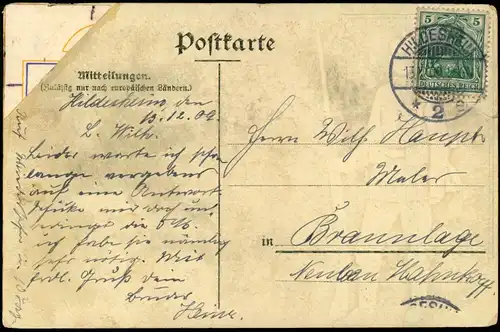 Postkarte
Mitteilungen.
(Zulässig nur nach europäischen Ländern.)
Hildesheim, den
13.12.09.
L. Wilh.
Leider warte ich schon
lange vergebens
auf eine Antwort
schicke mir doch
die 5 M.
ich habe sie nämlich
sehr nötig. Mit
frdl. Gruß dein
Bruder
Herrn Wilh. Haupt
Maler
in Braunlage
Neuben Bahnhoff
5 5
DEUTSCHES REICH
HILDESHEIM
13
* 2